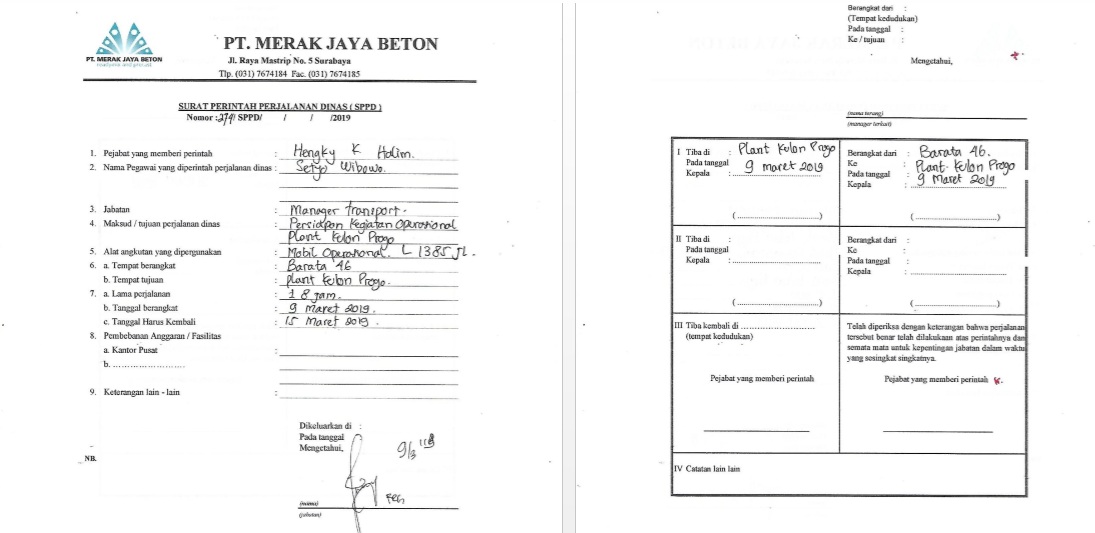 PT. MERAK JAYA BETON
PT. MERAK JAYA BETON
Jl. Raya Mastrip No. 5 Surabaya
Tlp. (031) 7674184 Fac. (031) 7674185
SURAT PERINTAH PERJALANAN DINAS ( SPPD )
Nomor : 274/ SPPD/ / / /2019
1. Pejabat yang memberi perintah : Hengky K Halim.
2. Nama Pegawai yang diperintah perjalanan dinas : Setyo Wibowo.
3. Jabatan : Manager Transport.
4. Maksud / tujuan perjalanan dinas : Persiapan Kegiatan Operasional
Plant Kulon Progo
5. Alat angkutan yang dipergunakan : Mobil Operasional. L 1385 JL.
6. a. Tempat berangkat : Barata 46
b. Tempat tujuan : Plant Kulon Progo.
7. a. Lama perjalanan : 18 jam.
b. Tanggal berangkat : 9 Maret 2019.
c. Tanggal Harus Kembali : 15 Maret 2019.
8. Pembebanan Anggaran / Fasilitas
a. Kantor Pusat :
b. ........................
9. Keterangan lain - lain :
Dikeluarkan di :
Pada tanggal
Mengetahui,
NB.
(nama)
(jabatan)
Berangkat dari :
(Tempat kedudukan)
Pada tanggal :
Ke / tujuan :
Mengetahui,
(nama terang)
(manager terkait)
I Tiba di : Plant Kulon Progo
Pada tanggal 9 maret 2019
Kepala :
(........................)
Berangkat dari : Barata 46.
Ke : Plant Kulon Progo
Pada tanggal : 9 Maret 2019
Kepala :
(........................)
II Tiba di :
Pada tanggal
Kepala :
(........................)
Berangkat dari :
Ke :
Pada tanggal :
Kepala :
(........................)
III Tiba kembali di ........................
(tempat kedudukan)
Pejabat yang memberi perintah
Telah diperiksa dengan keterangan bahwa perjalanan
tersebut benar telah dilakukaan atas perintahnya dan
semata mata untuk kepentingan jabatan dalam waktu
yang sesingkat singkatnya.
Pejabat yang memberi perintah
IV Catatan lain lain